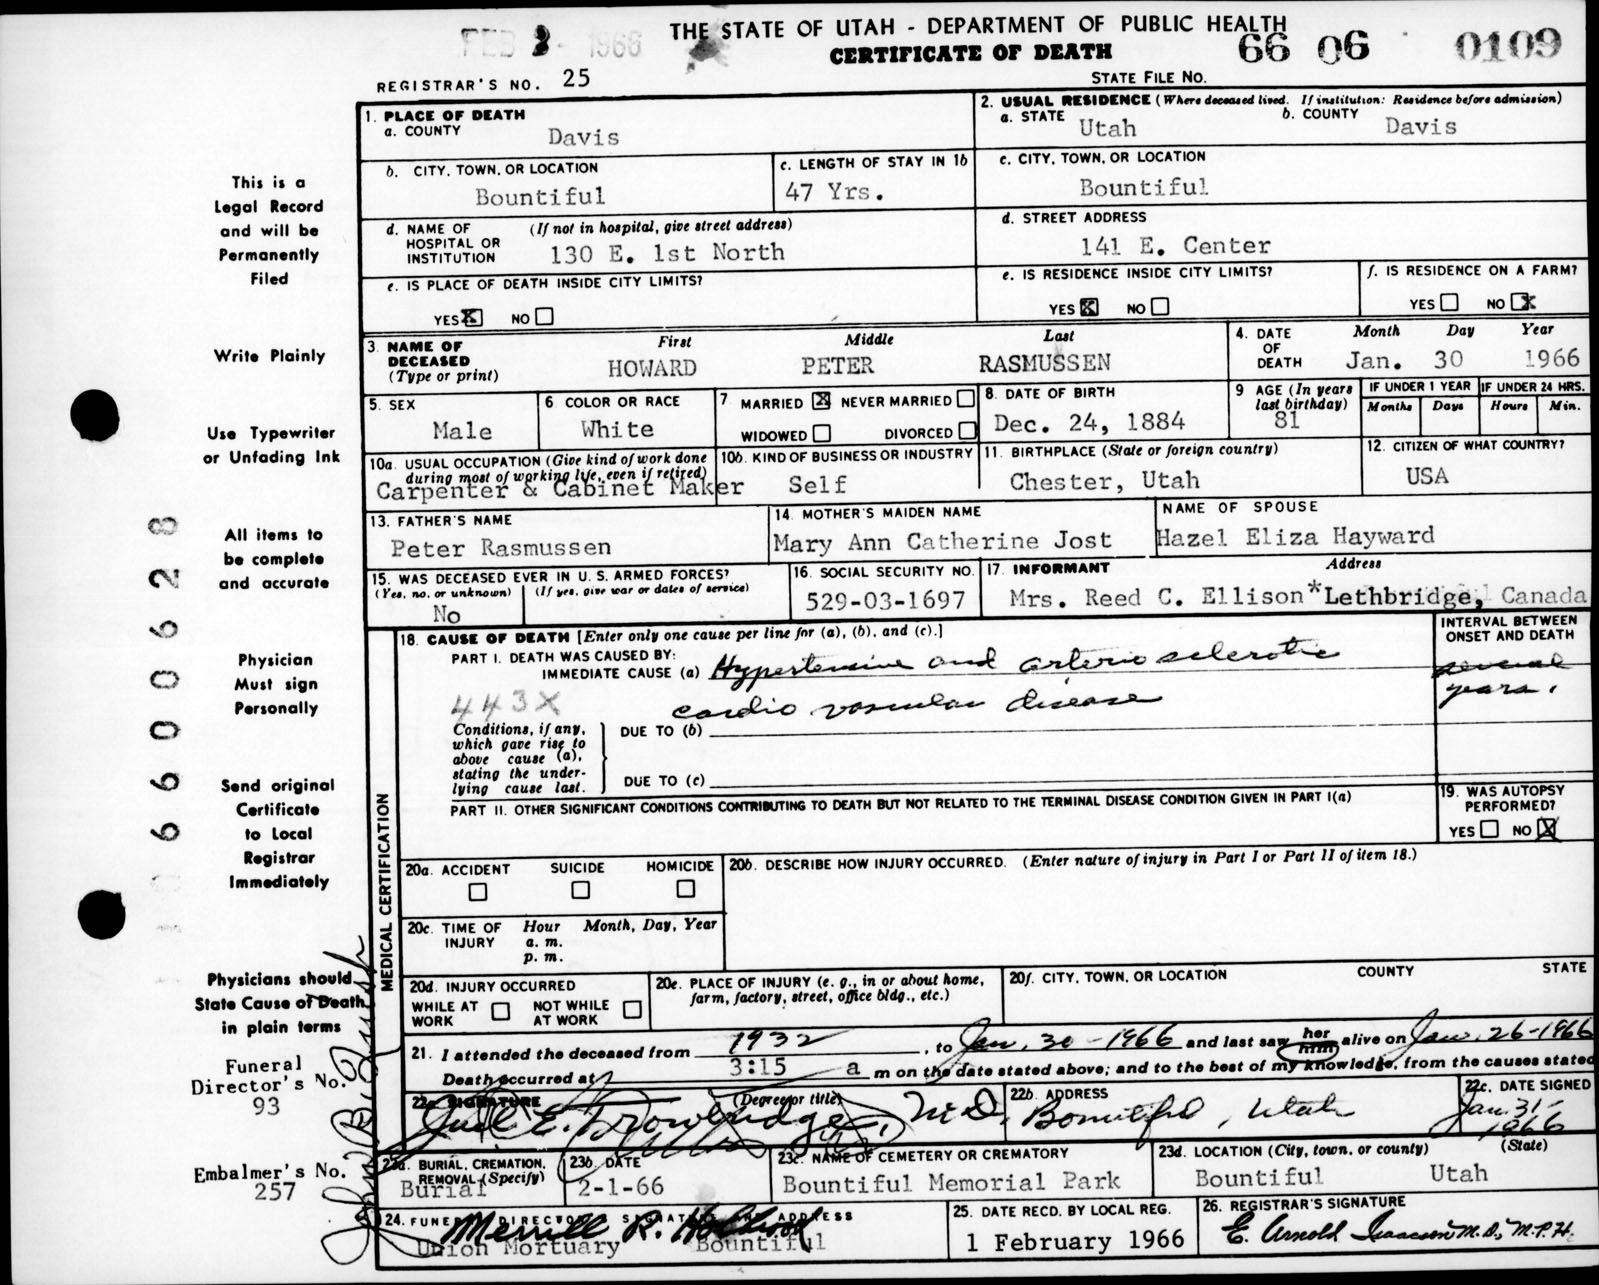 THE STATE OF UTAH - DEPARTMENT OF PUBLIC HEALTH
FEB 1966
CERTIFICATE OF DEATH
66 06 0109
REGISTRAR'S NO. 25
STATE FILE NO.
1. PLACE OF DEATH
a. COUNTY Davis
2. USUAL RESIDENCE (Where deceased lived. If institution: Residence before admission)
a. STATE Utah b. COUNTY Davis
b. CITY, TOWN, OR LOCATION
Bountiful
c. LENGTH OF STAY IN 1b
47 Yrs.
c. CITY, TOWN, OR LOCATION
Bountiful
d. NAME OF HOSPITAL OR INSTITUTION (If not in hospital, give street address)
130 E. 1st North
d. STREET ADDRESS
141 E. Center
e. IS PLACE OF DEATH INSIDE CITY LIMITS?
YES X NO
e. IS RESIDENCE INSIDE CITY LIMITS?
YES X NO
f. IS RESIDENCE ON A FARM?
YES NO X
3. NAME OF DECEASED (Type or print)
First Middle Last
HOWARD PETER RASMUSSEN
4. DATE OF DEATH
Month Day Year
Jan. 30 1966
5. SEX
Male
6 COLOR OR RACE
White
7 MARRIED X NEVER MARRIED
WIDOWED DIVORCED
8. DATE OF BIRTH
Dec. 24, 1884
9 AGE (In years last birthday)
81
IF UNDER 1 YEAR
Months Days
IF UNDER 24 HRS.
Hours Min.
10a. USUAL OCCUPATION (Give kind of work done during most of working life, even if retired)
Carpenter & Cabinet Maker
10b. KIND OF BUSINESS OR INDUSTRY
Self
11. BIRTHPLACE (State or foreign country)
Chester, Utah
12. CITIZEN OF WHAT COUNTRY?
USA
13. FATHER'S NAME
Peter Rasmussen
14. MOTHER'S MAIDEN NAME
Mary Ann Catherine Jost
NAME OF SPOUSE
Hazel Eliza Hayward
15. WAS DECEASED EVER IN U. S. ARMED FORCES?
(Yes, no, or unknown) (If yes, give war or dates of service)
No
16. SOCIAL SECURITY NO.
529-03-1697
17. INFORMANT Address
Mrs. Reed C. Ellison*Lethbridge, Canada
MEDICAL CERTIFICATION
18. CAUSE OF DEATH [Enter only one cause per line for (a), (b), and (c).]
INTERVAL BETWEEN ONSET AND DEATH
PART I. DEATH WAS CAUSED BY:
IMMEDIATE CAUSE (a) Hypertensive and arterio sclerotic
several years.
443X cardio vascular disease
Conditions, if any, which gave rise to above cause (a), stating the underlying cause last.
DUE TO (b)
DUE TO (c)
PART II. OTHER SIGNIFICANT CONDITIONS CONTRIBUTING TO DEATH BUT NOT RELATED TO THE TERMINAL DISEASE CONDITION GIVEN IN PART I(a)
19. WAS AUTOPSY PERFORMED?
YES NO X
20a. ACCIDENT SUICIDE HOMICIDE
20b. DESCRIBE HOW INJURY OCCURRED. (Enter nature of injury in Part I or Part II of item 18.)
20c. TIME OF INJURY
Hour Month, Day, Year
a. m.
p. m.
20d. INJURY OCCURRED
WHILE AT WORK NOT WHILE AT WORK
20e. PLACE OF INJURY (e. g., in or about home, farm, factory, street, office bldg., etc.)
20f. CITY, TOWN, OR LOCATION COUNTY STATE
21. I attended the deceased from 1932, to Jan. 30 - 1966 and last saw her him alive on Jan. 26-1966
Death occurred at 3:15 a m on the date stated above; and to the best of my knowledge, from the causes stated
22a. SIGNATURE (Degree or title)
Joel E. Trowbridge, M.D.
22b. ADDRESS
Bountiful, Utah
22c. DATE SIGNED
Jan. 31-1966
23a. BURIAL, CREMATION, REMOVAL (Specify)
Burial
23b. DATE
2-1-66
23c. NAME OF CEMETERY OR CREMATORY
Bountiful Memorial Park
23d. LOCATION (City, town, or county) (State)
Bountiful Utah
24. FUNERAL DIRECTOR'S SIGNATURE AND ADDRESS
Merrill R. Holbrook
Union Mortuary Bountiful
25. DATE RECD. BY LOCAL REG.
1 February 1966
26. REGISTRAR'S SIGNATURE
E. Arnold Isaacson M.D., M.P.H.
This is a
Legal Record
and will be
Permanently
Filed
Write Plainly
Use Typewriter
or Unfading Ink
All items to
be complete
and accurate
Physician
Must sign
Personally
Send original
Certificate
to Local
Registrar
Immediately
Physicians should
State Cause of Death
in plain terms
Funeral
Director's No.
93
Embalmer's No.
257
6600628